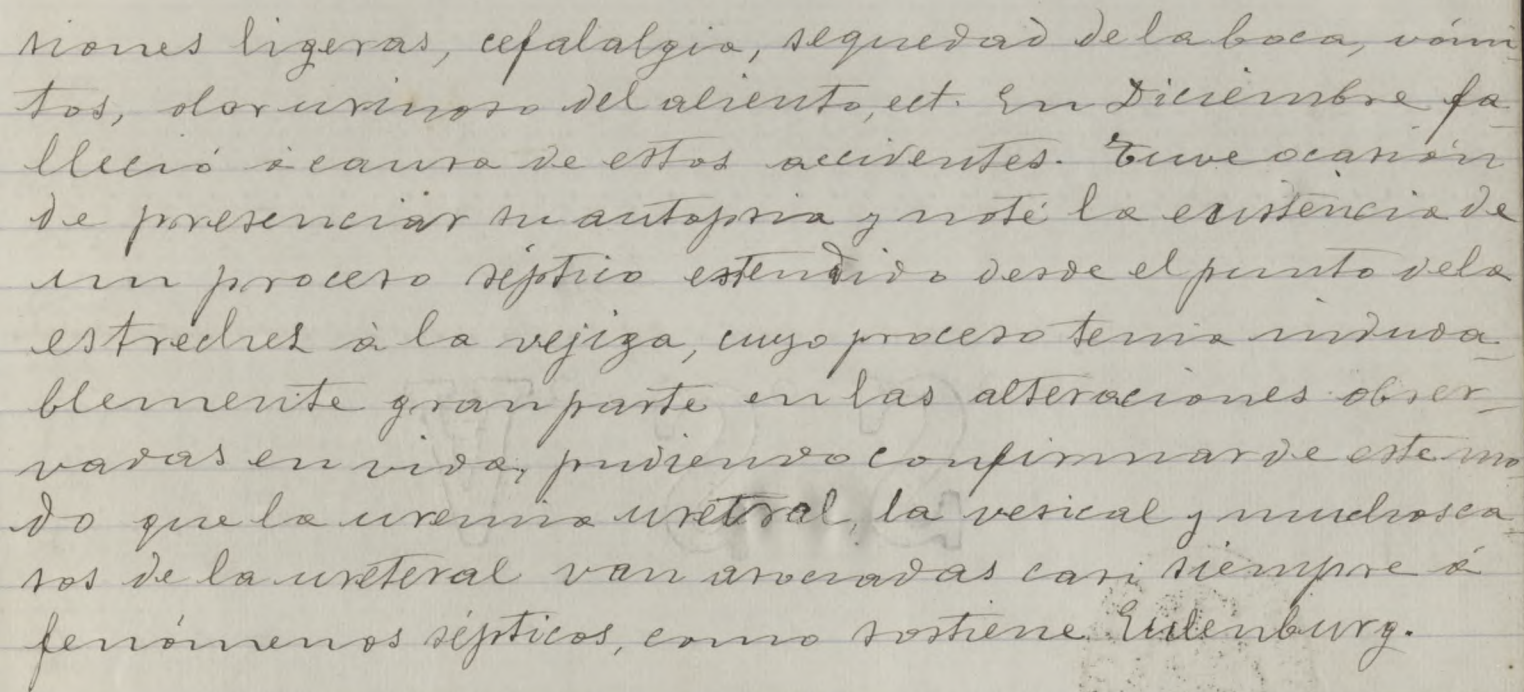 siones ligeras, cefalalgia, sequedad de la boca, vómi-
tos, olor urinoso del aliento, ect. En Diciembre fa-
lleció á causa de estos accidentes. Tuve ocasión
de presenciar su autopsia y noté la existencia de
un proceso séptico estendido desde el punto de la
estrechez à la vejiga, cuyo proceso tenia induda-
blemente gran parte en las alteraciones obser-
vadas en vida, pudiendo confirmar de este mo-
do que la uremia uretral, la vesical y muchos ca-
sos de la ureteral van asociadas casi siempre á
fenómenos sépticos, como sostiene Eulenburg.